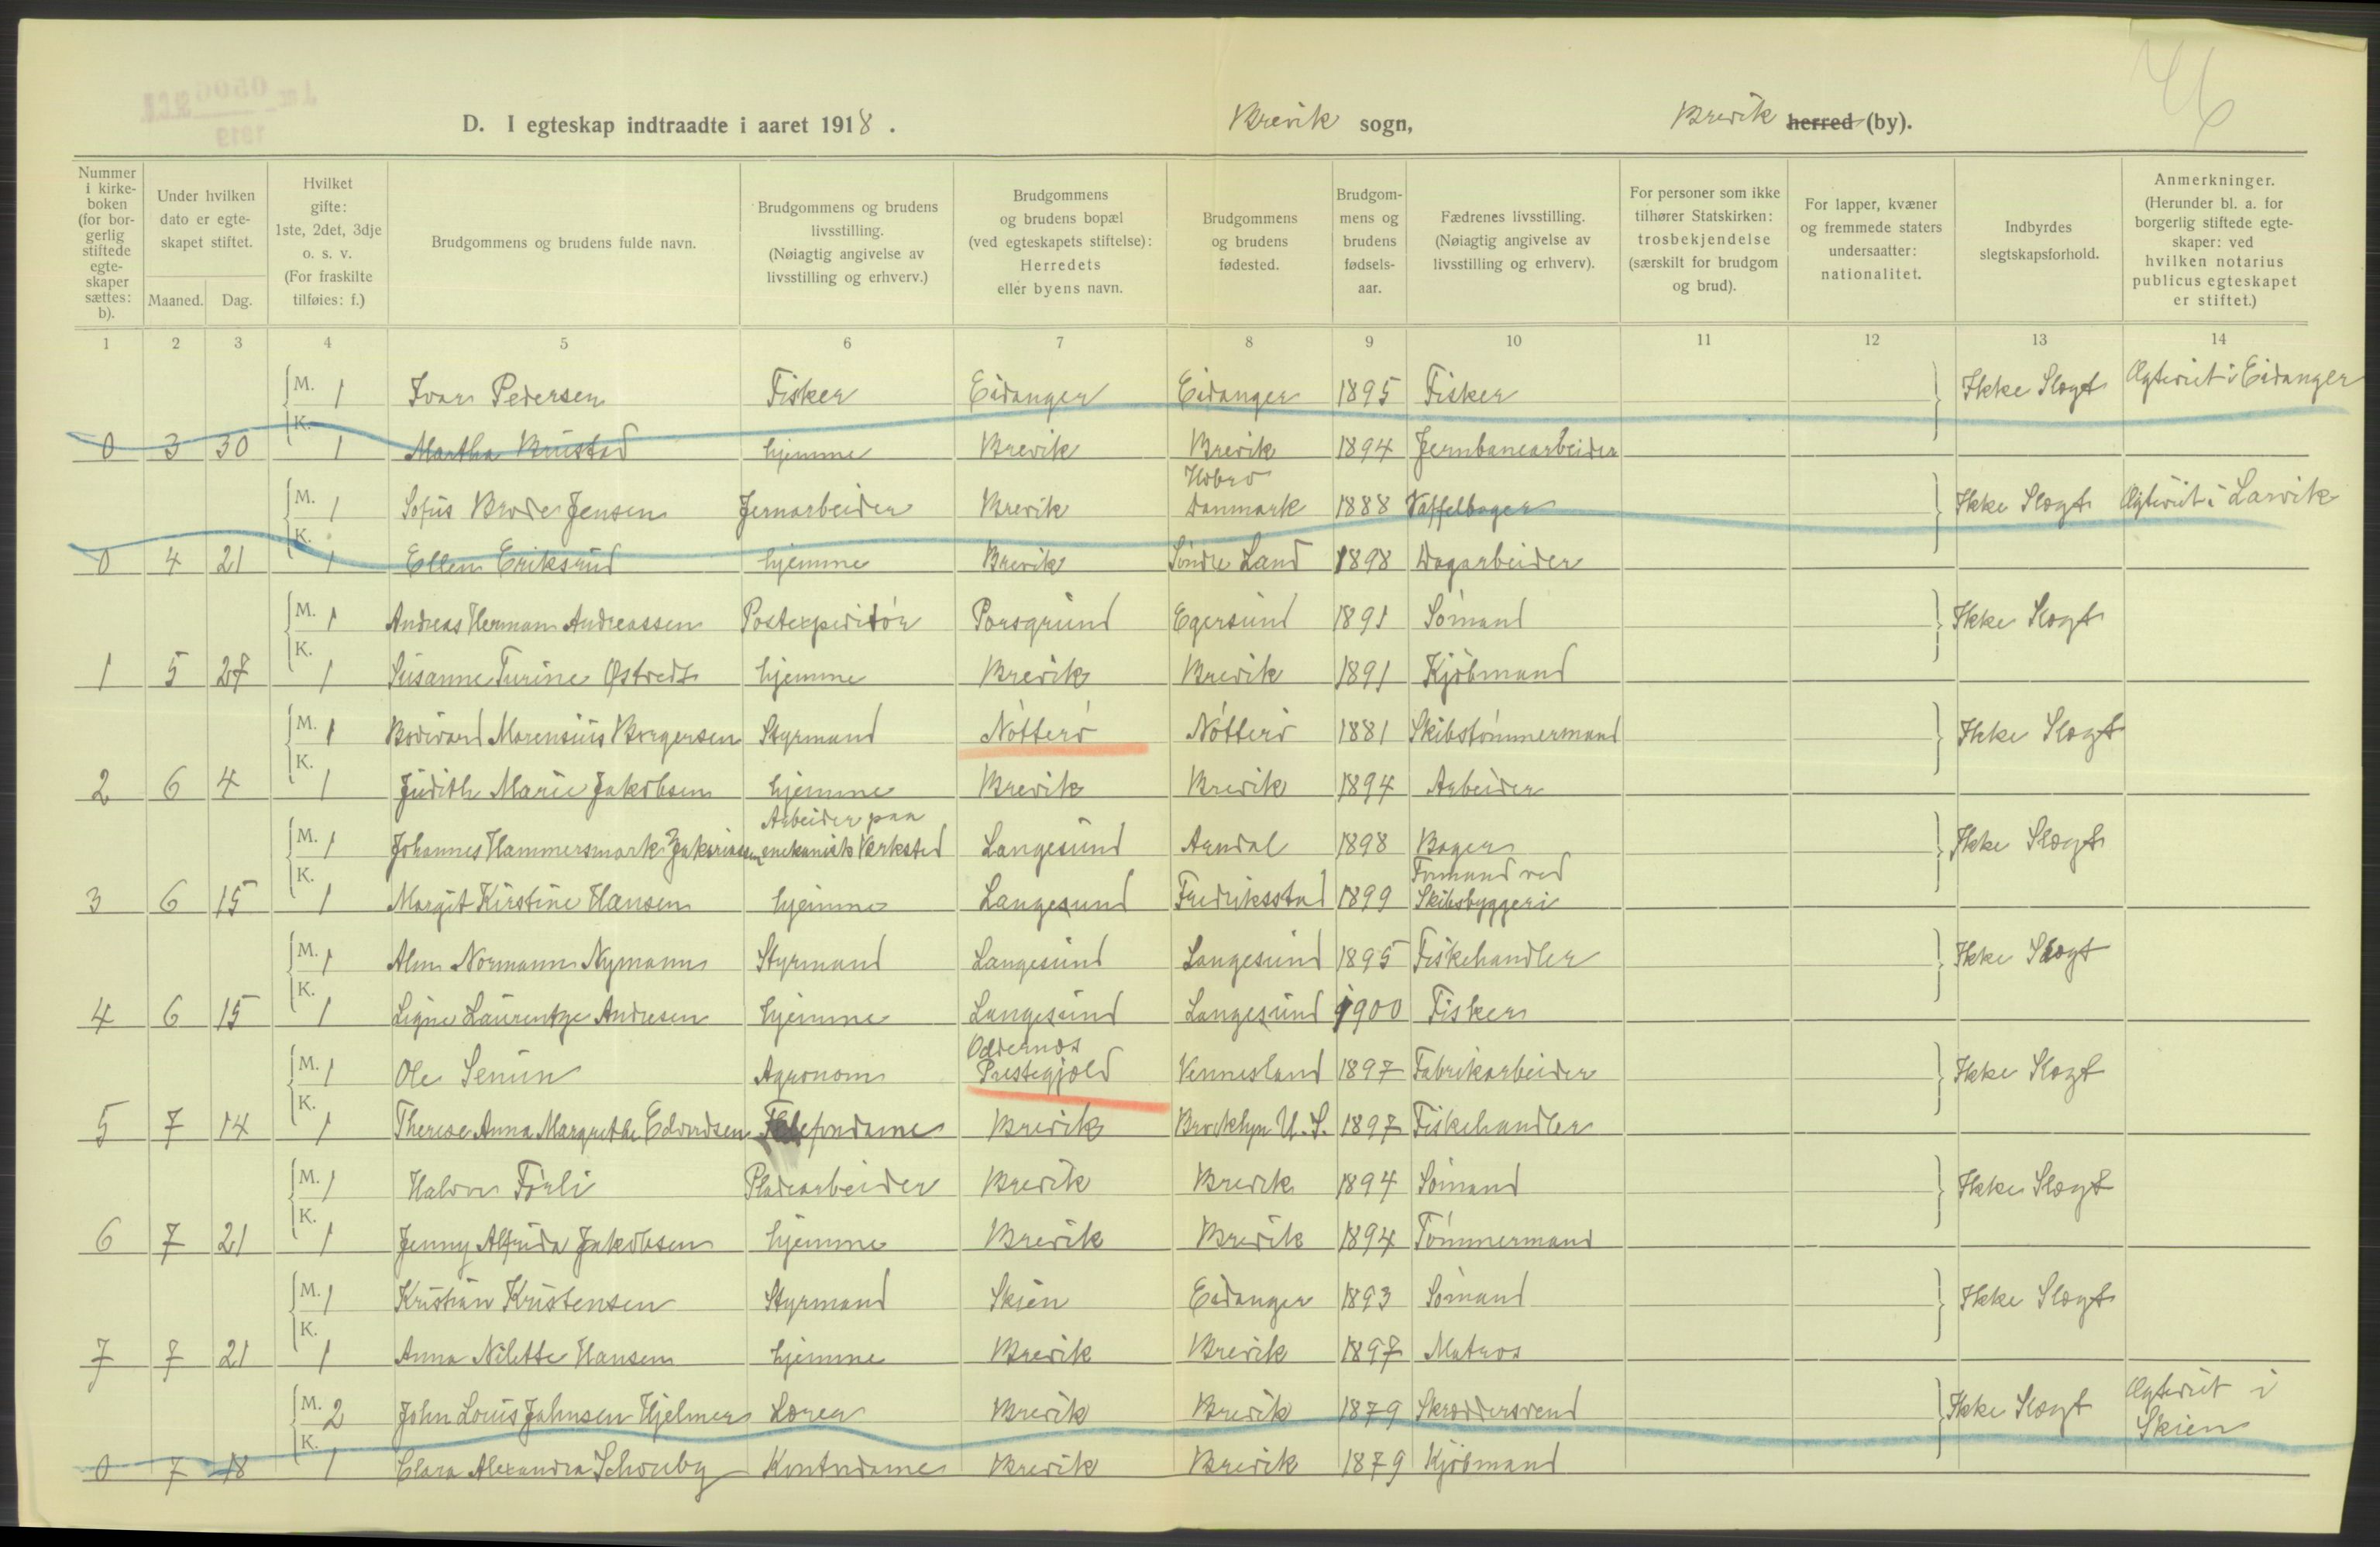 D. I egteskap indtraadte i aaret 1918. Brevik sogn, Brevik herred (by).
Nummer i kirkeboken (for borgerlig stiftede egteskaper sættes: b).
Under hvilken dato er egteskapet stiftet.
Maaned. Dag.
Hvilket gifte: 1ste, 2det, 3dje o. s. v. (For fraskilte tilføies: f.)
Brudgommens og brudens fulde navn.
Brudgommens og brudens livsstilling. (Nøiagtig angivelse av livsstilling og erhverv.)
Brudgommens og brudens bopæl (ved egteskapets stiftelse): Herredets eller byens navn.
Brudgommens og brudens fødested.
Brudgommens og brudens fødselsaar.
Fædrenes livsstilling. (Nøiagtig angivelse av livsstilling og erhverv).
For personer som ikke tilhører Statskirken: trosbekjendelse (særskilt for brudgom og brud).
For lapper, kvæner og fremmede staters undersaatter: nationalitet.
Indbyrdes slegtskapsforhold.
Anmerkninger. (Herunder bl. a. for borgerlig stiftede egteskaper: ved hvilken notarius publicus egteskapet er stiftet.)
1 2 3 4 5 6 7 8 9 10 11 12 13 14
M. 1 Ivar Pedersen Fisker Eidanger Eidanger 1895 Fisker Ikke Slegt Ægteviet i Eidanger
0 3 30 K. 1 Martha Brustad hjemme Brevik Brevik 1894 Jernbanearbeider
M. 1 Sofus Brode Jensen Jernarbeider Brevik Hobro Danmark 1888 Vaffelbager Ikke Slegt Ægteviet i Larvik
0 4 21 K. 1 Ellen Eriksrud hjemme Brevik Söndre Land 1898 Dagarbeider
M. 1 Andreas Herman Andreassen Postexpeditör Porsgrund Egersund 1891 Sömand Ikke Slegt
1 5 27 K. 1 Susanne Turine Østvedt hjemme Brevik Brevik 1891 Kjöbmand
M. 1 Marensius Borgersen Styrmand Nötterö Nötterö 1881 Skibstömmermand Ikke Slegt
2 6 4 K. 1 Judith Marie Jakobsen hjemme Brevik Brevik 1894 Arbeider
M. 1 Johannes Hammersmark Zakariassen Arbeider paa mekanisk Verksted Langesund Arndal 1898 Bager Ikke Slegt
3 6 15 K. 1 Margit Kirstine Hansen hjemme Langesund Fredriksstad 1899 Formand ved Skibsbyggeri
M. 1 Alm Normann Nymann Styrmand Langesund Langesund 1895 Fiskehandler Ikke Slegt
4 6 15 K. 1 Signe Laurentze Andresen hjemme Langesund Langesund 1900 Fisker
M. 1 Ole Senum Agronom Oddernæs Prestegjæld Vennesland 1897 Fabrikarbeider Ikke Slegt
5 7 14 K. 1 Therese Anna Margrethe Edvardsen Telefondame Brevik Brooklyn U.S. 1897 Fiskehandler
M. 1 Halvor Törli Pladearbeider Brevik Brevik 1894 Sömand Ikke Slegt
6 7 21 K. 1 Jenny Alfrida Jakobsen hjemme Brevik Brevik 1894 Tömmermand
M. 1 Kristian Kristensen Styrmand Skien Eidanger 1893 Sömand Ikke Slegt
7 7 21 K. 1 Anna Nilette Hansen hjemme Brevik Brevik 1897 Matros
M. 2 John Louis Johnsen Hjelmer Lærer Brevik Brevik 1879 Skræddersvend Ikke Slegt Ægteviet i Skien
0 7 18 K. 1 Clara Alexandra Schouby Kontordame Brevik Brevik 1879 Kjöbmand